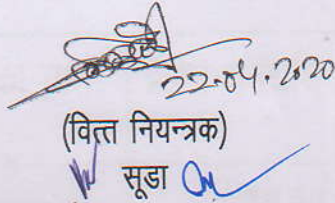 22.04.2020
(वित्त नियन्त्रक)
सूडा